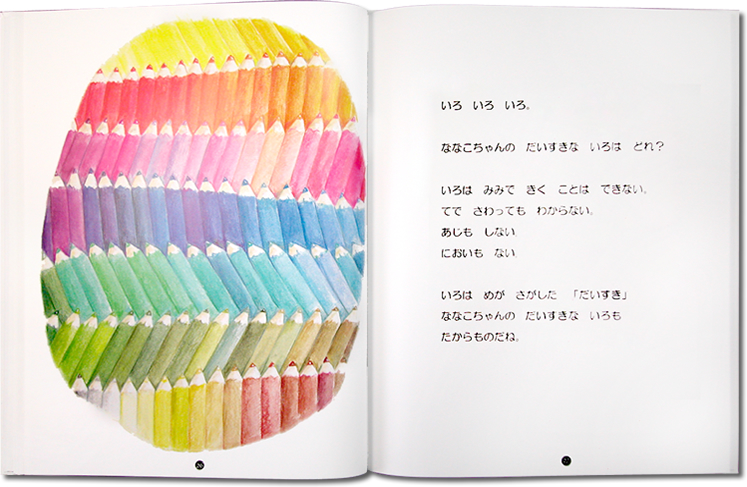 いろ　いろ　いろ。
ななこちゃんの　だいすきな　いろは　どれ？
いろは　みみで　きく　ことは　できない。
てで　さわっても　わからない。
あじも　しない
においも　ない
いろは　めが　さがした　「だいすき」
ななこちゃんの　だいすきな　いろも
たからものだね。